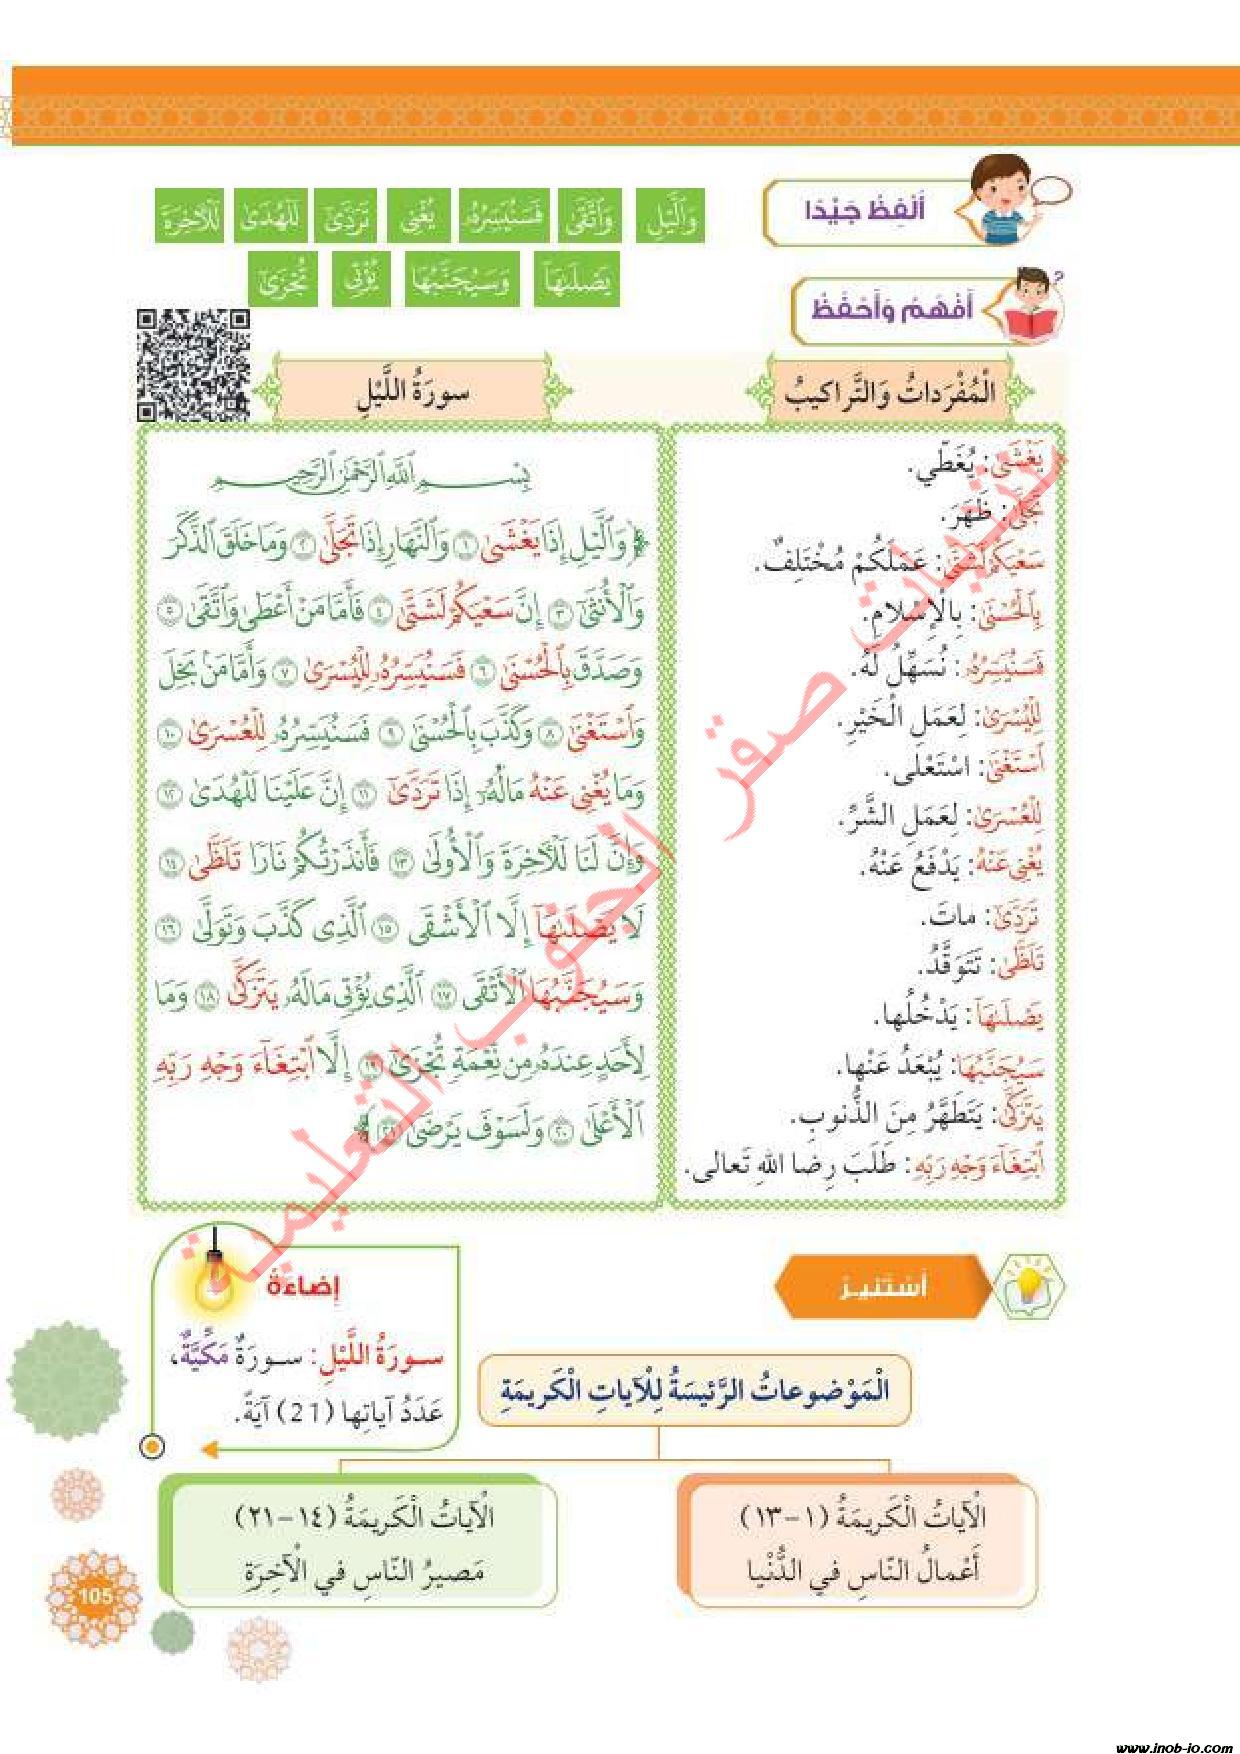 أَلْفِظُ جَيِّدًا
وَٱلَّيْلِ وَٱتَّقَىٰ فَسَنُيَسِّرُهُۥ يُغْنِي تَرَدَّىٰٓ لَلْهُدَىٰ لَلْأٓخِرَةَ
يَصْلَىٰهَآ وَسَيُجَنَّبُهَا يُؤْتِي تُجْزَىٰٓ
أَفْهَمُ وَأَحْفَظُ
الْمُفْرَداتُ وَالتَّراكيبُ
يَغْشَىٰ: يُغَطّي.
تَجَلَّىٰ: ظَهَرَ.
سَعْيَكُمْ لَشَتَّىٰ: عَمَلَكُمْ مُخْتَلِفٌ.
بِٱلْحُسْنَىٰ: بِالْإِسْلامِ.
فَسَنُيَسِّرُهُۥ: نُسَهِّلُ لَهُ.
لِلْيُسْرَىٰ: لِعَمَلِ الْخَيْرِ.
ٱسْتَغْنَىٰ: اسْتَعْلى.
لِلْعُسْرَىٰ: لِعَمَلِ الشَّرِّ.
يُغْنِي عَنْهُ: يَدْفَعُ عَنْهُ.
تَرَدَّىٰٓ: ماتَ.
تَلَظَّىٰ: تَتَوَقَّدُ.
يَصْلَىٰهَآ: يَدْخُلُها.
سَيُجَنَّبُهَا: يُبْعَدُ عَنْها.
يَتَزَكَّىٰ: يَتَطَهَّرُ مِنَ الذُّنوبِ.
ٱبْتِغَآءَ وَجْهِ رَبِّهِ: طَلَبَ رِضا اللهِ تَعالى.
سورَةُ اللَّيْلِ
بِسْمِ ٱللَّهِ ٱلرَّحْمَٰنِ ٱلرَّحِيمِ
﴿وَٱلَّيْلِ إِذَا يَغْشَىٰ ١ وَٱلنَّهَارِ إِذَا تَجَلَّىٰ ٢ وَمَا خَلَقَ ٱلذَّكَرَ
وَٱلْأُنثَىٰٓ ٣ إِنَّ سَعْيَكُمْ لَشَتَّىٰ ٤ فَأَمَّا مَنْ أَعْطَىٰ وَٱتَّقَىٰ ٥
وَصَدَّقَ بِٱلْحُسْنَىٰ ٦ فَسَنُيَسِّرُهُۥ لِلْيُسْرَىٰ ٧ وَأَمَّا مَنۢ بَخِلَ
وَٱسْتَغْنَىٰ ٨ وَكَذَّبَ بِٱلْحُسْنَىٰ ٩ فَسَنُيَسِّرُهُۥ لِلْعُسْرَىٰ ١٠
وَمَا يُغْنِي عَنْهُ مَالُهُۥٓ إِذَا تَرَدَّىٰٓ ١١ إِنَّ عَلَيْنَا لَلْهُدَىٰ ١٢
وَإِنَّ لَنَا لَلْأٓخِرَةَ وَٱلْأُولَىٰ ١٣ فَأَنذَرْتُكُمْ نَارًا تَلَظَّىٰ ١٤
لَا يَصْلَىٰهَآ إِلَّا ٱلْأَشْقَى ١٥ ٱلَّذِي كَذَّبَ وَتَوَلَّىٰ ١٦
وَسَيُجَنَّبُهَا ٱلْأَتْقَى ١٧ ٱلَّذِي يُؤْتِي مَالَهُۥ يَتَزَكَّىٰ ١٨ وَمَا
لِأَحَدٍ عِندَهُۥ مِن نِّعْمَةٍ تُجْزَىٰٓ ١٩ إِلَّا ٱبْتِغَآءَ وَجْهِ رَبِّهِ
ٱلْأَعْلَىٰ ٢٠ وَلَسَوْفَ يَرْضَىٰ ٢١﴾
منتديات صقر الجنوب التعليمية
أَسْتَنيرُ
إِضاءَةٌ
سورَةُ اللَّيْلِ: سورَةٌ مَكِّيَّةٌ،
عَدَدُ آياتِها (21) آيَةً.
الْمَوْضوعاتُ الرَّئيسَةُ لِلْآياتِ الْكَريمَةِ
الْآياتُ الْكَريمَةُ (١-١٣)
أَعْمالُ النّاسِ في الدُّنْيا
الْآياتُ الْكَريمَةُ (١٤-٢١)
مَصيرُ النّاسِ في الْآخِرَةِ
105
www.jnob-jo.com